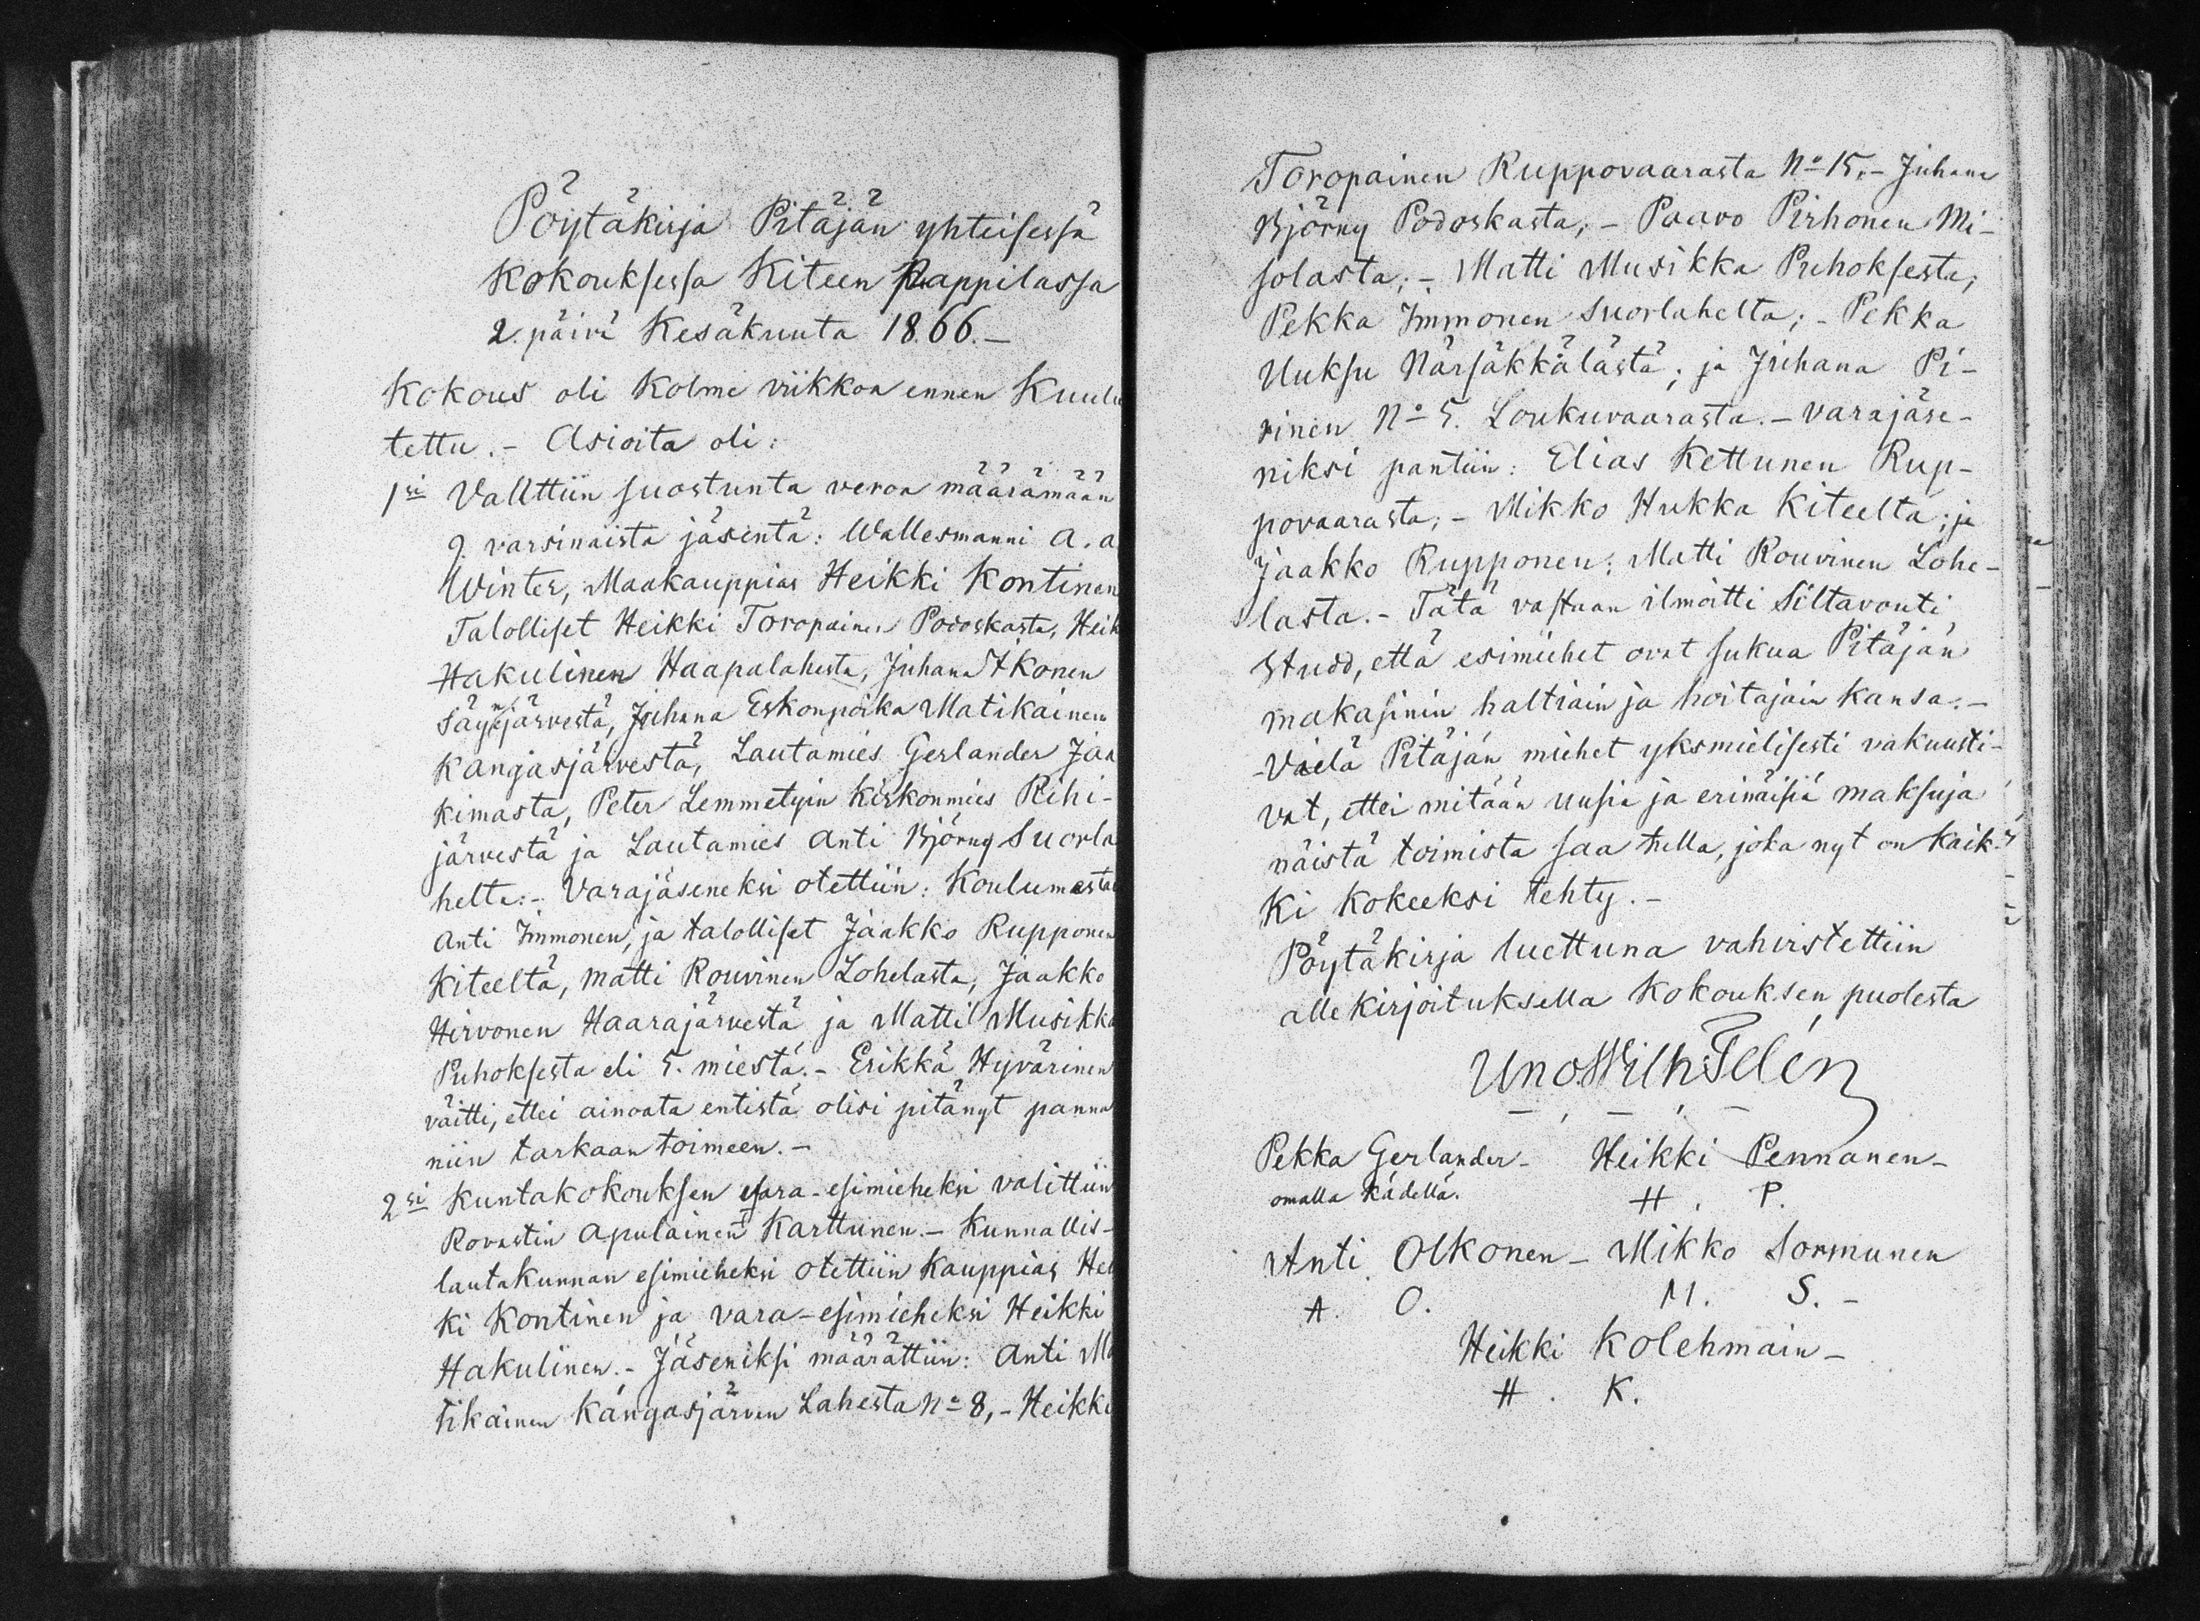 Pöytäkirja Pitäjän yhteisessä
Kokouksessa Kiteen Pappilassa
2. päivä Kesäkuuta 1866.—
Kokous oli Kolme viikkoa ennen Kuulu
tettu.- Asioita oli:
1si Valittiin suostunta veroa määrämään
9. varsinaista jäsentä: Wallesmanni A. A
Winter, Maakauppias Heikki Kontinen
Talolliset Heikki Toropainen Podoskasta, Heik
Hakulinen Haapalahesta, Juhana Ikonen
Säynejärvestä, Juhana Eskonpoika Matikainen
Kangasjärvestä, Lautamies Gerlander Jaa
kimasta, Peter Lemmetyin Kirkonmies Riihi-
järvestä ja Lautamies Anti Björny Suorla
helta:- Varajäseneksi otettiin: Koulumesta
Anti Immonen, ja talolliset Jaakko Rupponen
Kiteeltä, Matti Rouvinen Lohelasta, Jaakko
Hirvonen Haarajärvestä ja Matti Musikka
Puhoksesta eli 5. miestä.- Erikkä Hyvärinen
väitti, ettei ainoata entistä olisi pitänyt panna
niin tarkaan toimeen.-
2si Kuntakokouksen esimieheksi valittiin
Rovastin Apulainen Karttunen.- Kunnallis-
lautakunnan esimieheksi otettiin Kauppias Hei
ki Kontinen ja vara-esimieheksi Heikki
Hakulinen.- Jäseniksi määrättiin: Anti Ma
tikainen Kangasjärven Lahesta No 8,- Heikki
Toropainen Ruppovaarasta No 15,- Juhana
Björny Podoskasta,- Paavo Pirhonen Mi-
solasta;- Matti Musikka Puhoksesta;
Pekka Immonen Suorlahelta;- Pekka
Uuksu Närsäkkälästä; ja Juhana Pi-
rinen No 5. Loukuvaarasta.- varajäse-
niksi pantiin: Elias Kettunen Rup-
povaarasta;- Mikko Hukka Kiteelta; ja
Jaakko Rupponen; Matti Rouvinen Lohe-
lasta.- Tätä vastaan ilmoitti Siltavouti
Studd, että esimiehet ovat sukua Pitäjän
makasinin haltiain ja hoitajain kansa.-
-Vielä Pitäjän miehet yksmielisesti vakuusti-
vat, ettei mitään uusia ja erinäisiä maksuja
näistä toimista saa tulla, joka nyt on kaik-
ki kokeeksi tehty.-
Pöytäkirja luettuna vahvistettiin
allekirjoituksella Kokouksen puolesta
Uno Wilh: Telén
Pekka Gerlander- Heikki Pennanen-
omalla kädellä. H. P.
Anti Olkonen- Mikko Sormunen
A. O. M. S.-
Heikki Kolehmain-
H. K.